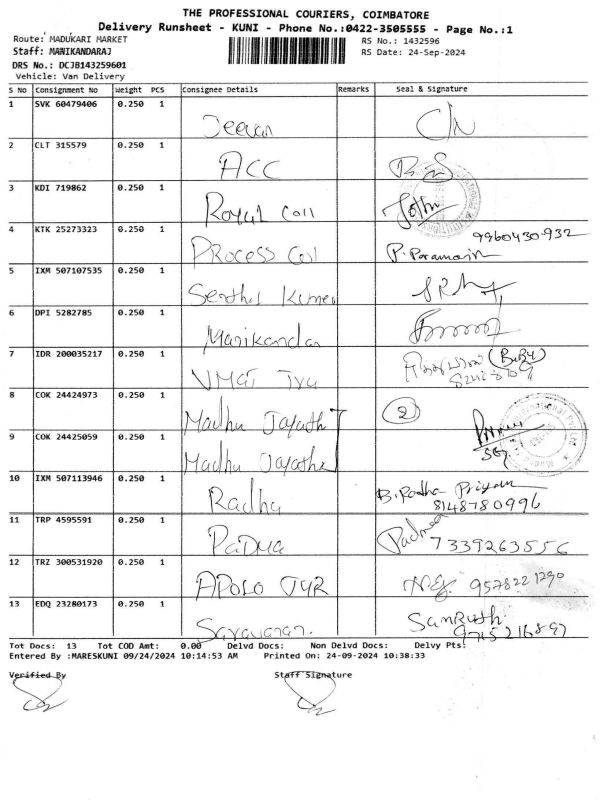 THE PROFESSIONAL COURIERS, COIMBATORE
Delivery Runsheet - KUNI - Phone No.:0422-3505555 - Page No.:1
Route: MADUKARI MARKET RS No.: 1432596
Staff: MANIKANDARAJ RS Date: 24-Sep-2024
DRS No.: DCJB143259601
Vehicle: Van Delivery
S No Consignment No Weight PCS Consignee Details Remarks Seal & Signature
1 SVK 60479406 0.250 1 Jeevan
2 CLT 315579 0.250 1 ACC
3 KDI 719862 0.250 1 Royal Coil John
4 KTK 25273323 0.250 1 Process Coil 9960430932
P. Paramajn
5 IXM 507107535 0.250 1 Senthil Kumar
6 DPI 5282785 0.250 1 Manikandan
7 IDR 200035217 0.250 1 UMAI (BABY)
8 COK 24424973 0.250 1 Madhu Jayathi 2
9 COK 24425059 0.250 1 Madhu Jayathi
10 IXM 507113946 0.250 1 Radha B. Radha Priyan
8148780996
11 TRP 4595591 0.250 1 Padma Padma
7339263556
12 TRZ 300531920 0.250 1 APOLO TYR 9578221290
13 EDQ 23280173 0.250 1 Saravanan. Sanruth
9715216897
Tot Docs: 13 Tot COD Amt: 0.00 Delvd Docs: Non Delvd Docs: Delvy Pts:
Entered By :MARESKUNI 09/24/2024 10:14:53 AM Printed On: 24-09-2024 10:38:33
Verified By Staff Signature